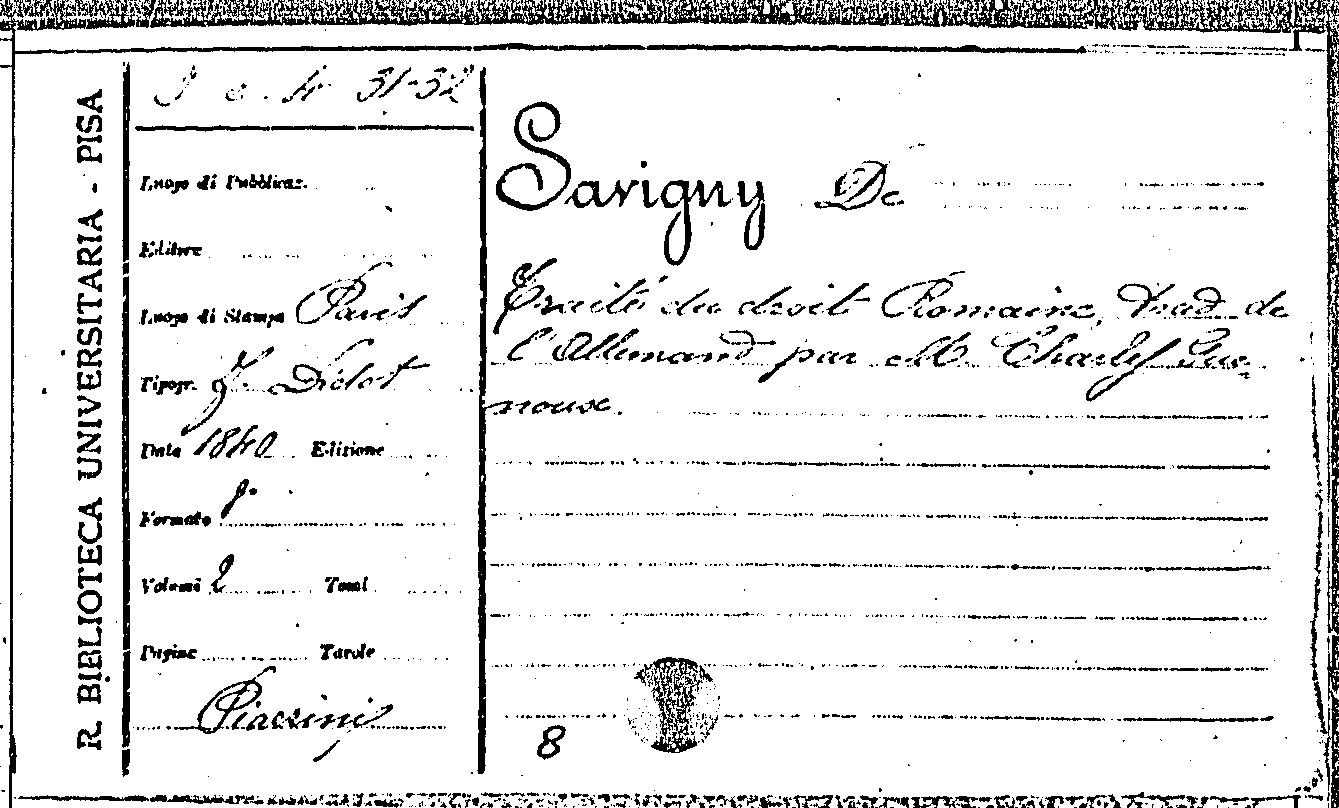 R. BIBLIOTECA UNIVERSITARIA - PISA
31-32
Luogo di Pubblicaz.
Editore
Luogo di Stampa Paris
Tipogr. F. Didot
Data 1840 Edizione
Formato 8.
Volumi 2 Tomi
Pagine Tavole
Piaccini
Savigny De
Traité du droit Romaine, trad. de
l'Allemand par M. Charles Gue-
noux.
8